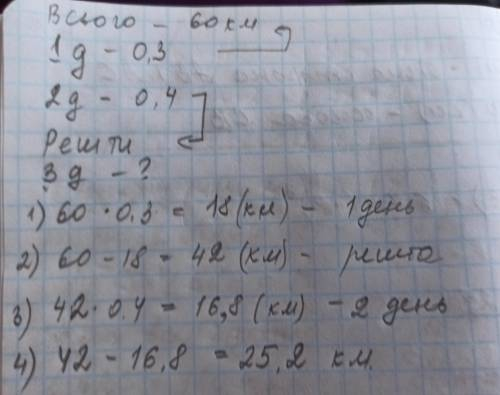 Всього – 60 км
1 д – 0,3
2 д – 0,4
Решти
3 д – ?
1) 60 · 0,3 = 18 (км) – 1 день
2) 60 – 18 = 42 (км) – решта
3) 42 · 0.4 = 16,8 (км) – 2 день
4) 42 – 16,8 = 25,2 км.